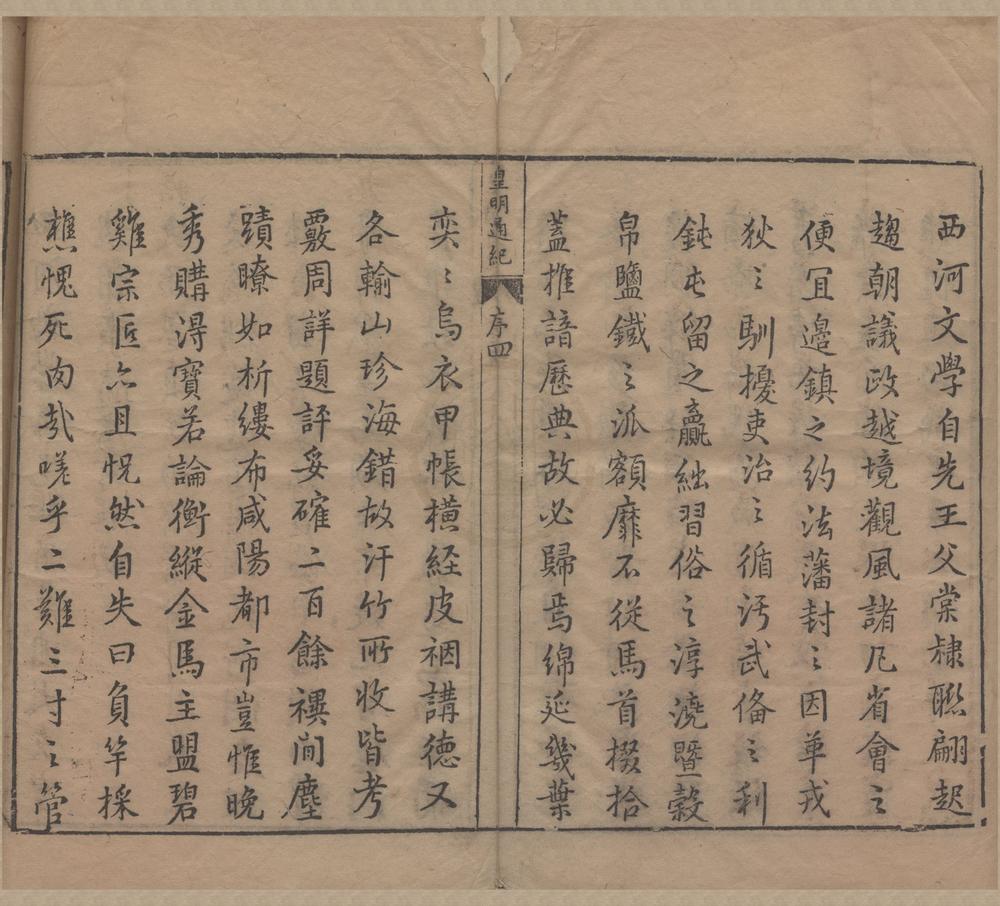 西河文學自先王父棠棣聯翩起
趨朝議政越境觀風諸凡省會之
便宜邊鎮之約法藩封之因革戎
狄之馴擾吏治之循污武俻之利
鈍屯留之贏絀習俗之淳澆暨糓
帛鹽鐵之派額靡不從馬首掇拾
蓋推諳歷典故必歸焉綿延幾葉
皇明通紀
序四
奕〻烏衣甲帳橫経皮裀講德又
各輸山珍海錯故汗竹所收皆考
覈周詳題評妥確二百餘禩間塵
蹟瞭如析縷布咸陽都市豈惟晚
秀購淂寶若論衡縱金馬主盟碧
雞宗匠亦且怳然自失曰負竿採
樵愧死肉㢤嗟乎二難三寸之管